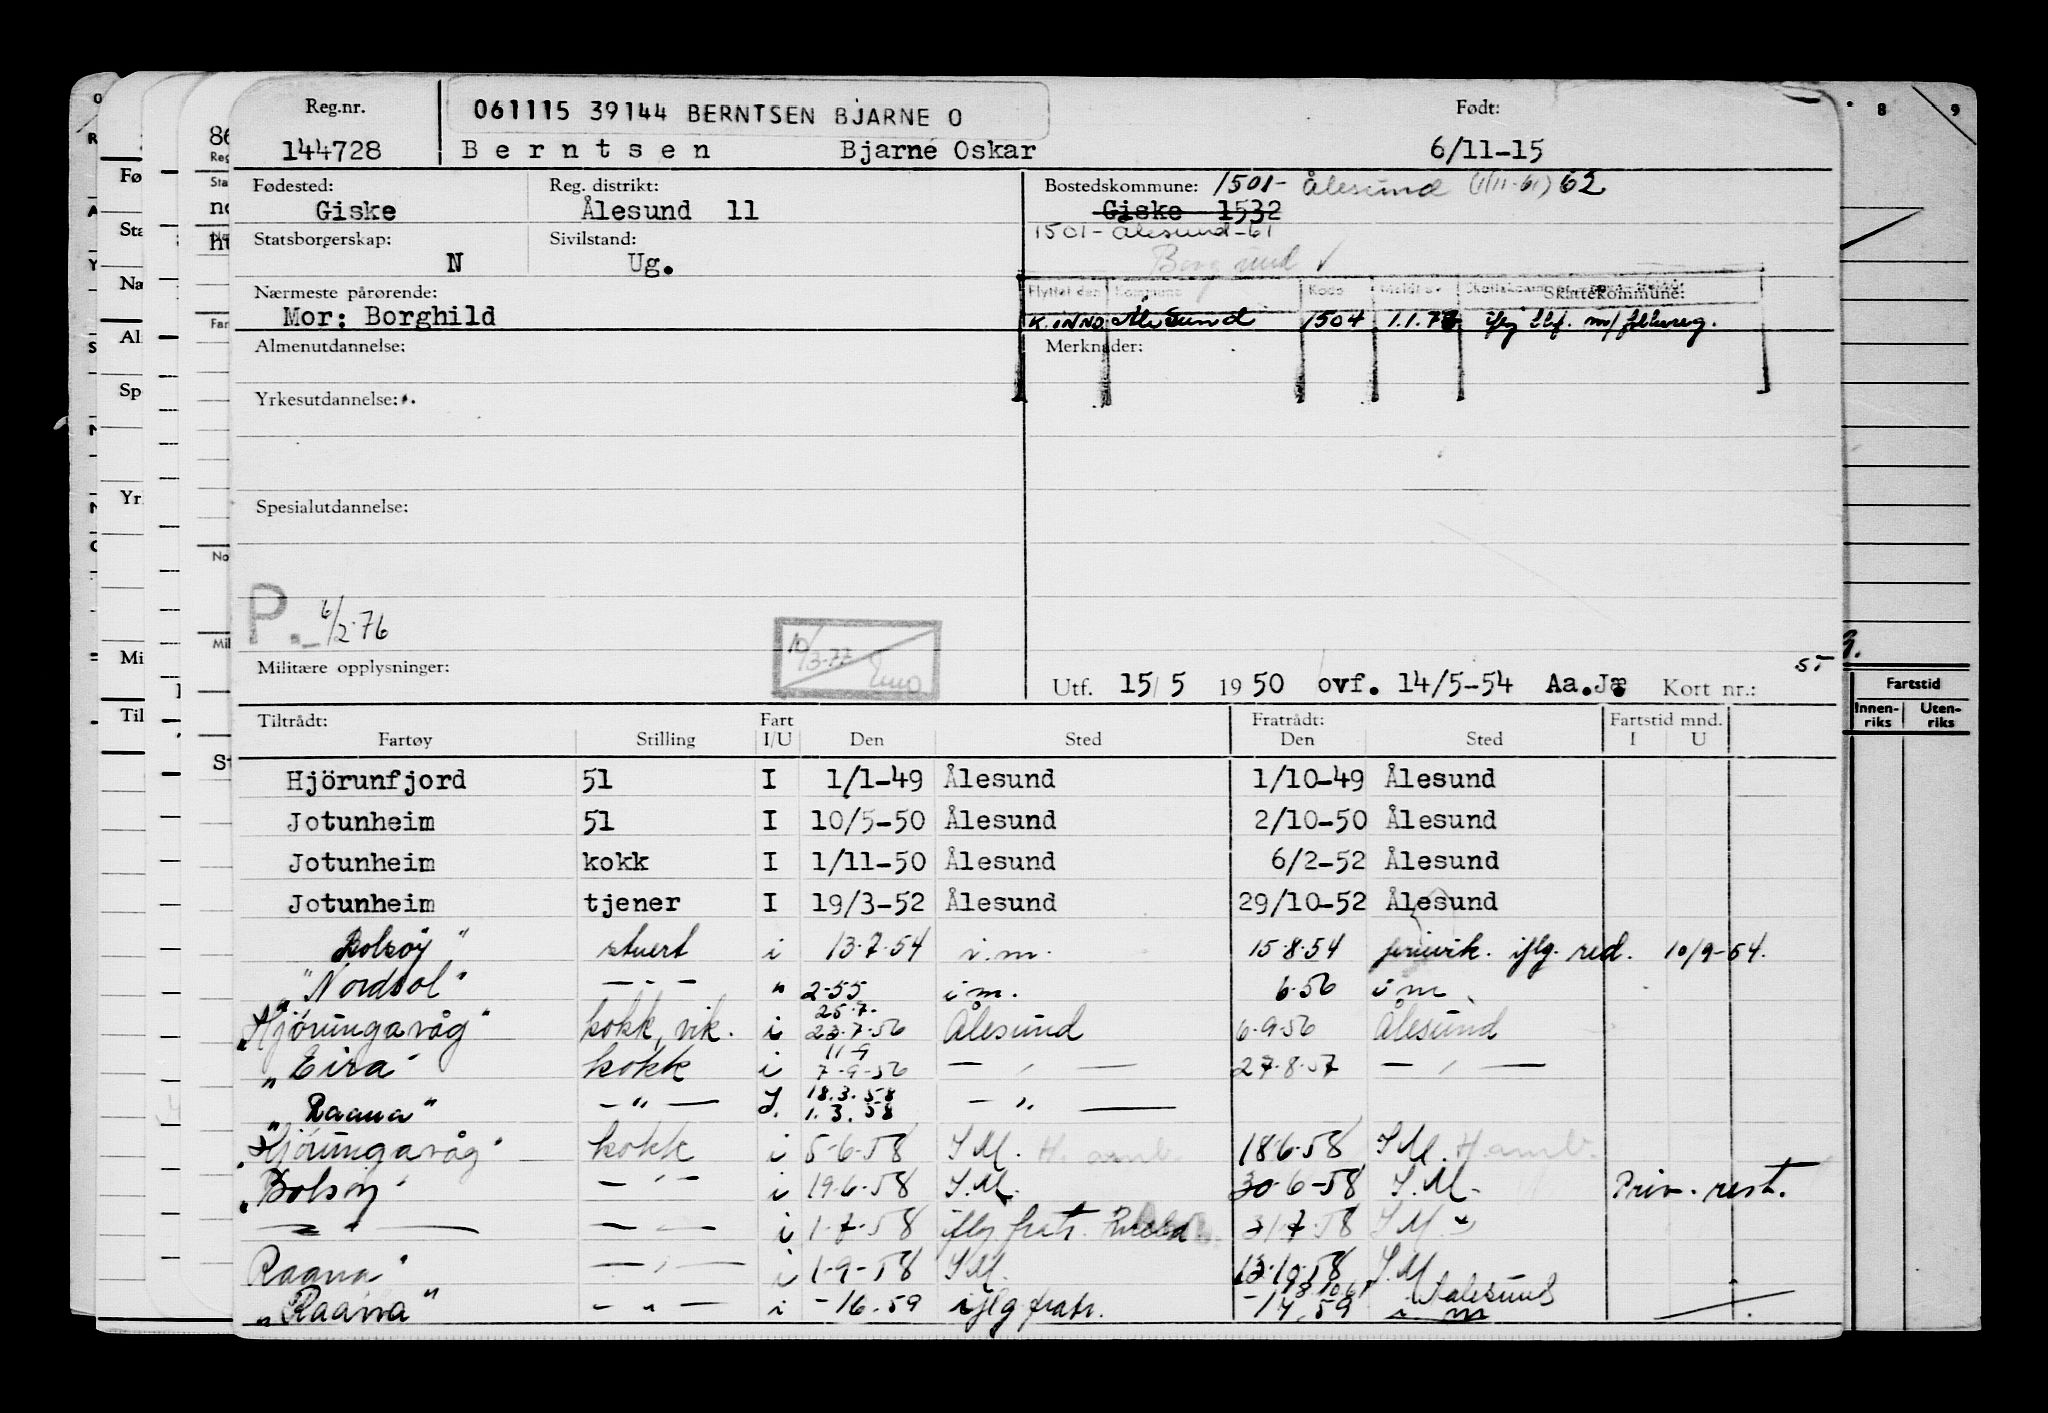 Reg.nr. 061115 39144 BERNTSEN BJARNE O Født:
144728 Berntsen Bjarne Oskar 6/11-15
Fødested: Reg. distrikt: Bostedskommune: 1501- Ålesund (1/11-61) 62
Giske Ålesund 11 Giske 1532
Statsborgerskap: Sivilstand: 1501- Ålesund-61
N Ug. Borgund ✓
Nærmeste pårørende: Flyttet den Kommune Kode Meldt av Skattekommune:
Mor: Borghild K.INND. Ålesund 1504 1.1.77 iflg tlf. m/ folkereg.
Almenutdannelse: Merknader:
Yrkesutdannelse:
Spesialutdannelse:
P. 6/2-76
10/3-77
Militære opplysninger: Utf. 15/5 1950 ovf. 14/5-54 Aa.Jæ Kort nr.: 5T
Tiltrådt: Fart Fratrådt: Fartstid mnd.
Fartøy Stilling I/U Den Sted Den Sted I U
Hjörunfjord 51 I 1/1-49 Ålesund 1/10-49 Ålesund
Jotunheim 51 I 10/5-50 Ålesund 2/10-50 Ålesund
Jotunheim kokk I 1/11-50 Ålesund 6/2-52 Ålesund
Jotunheim tjener I 19/3-52 Ålesund 29/10-52 Ålesund
Bolsøy" stuert i 13.7.54 i.m. 15.8.54 ferievik. iflg. red. 10/9-54.
"Nordsol" — " — " 2-55 i m. 6.56 i m.
"Hjørungavåg" kokk, vik. i 25.7. 23.7.56 Ålesund 6.9.56 Ålesund
"Eira" kokk i 11-9 7-9-56 — " — 27.8.57 — " —
"Raana" — " — I. 18.3.58 1.3.58 — " —
"Hjørungavåg" kokk i 5-6-58 I.M. 18.6.58 I.M.
"Bolsøy" — " — i 19.6.58 I.M. 30-6-58 I.M. Priv. rest.
— " — — " — i 1-7-58 iflg. fratr. 31.7.58 I.M.
Raana" — " — i 1-9-58 I.M. 13.10.58 I.M.
"Raana" — " — i -16.59 iflg fratr. 13 10.61 Aalesund -17.59 i m
8 9
Fartstid
Innen-riks Uten-riks